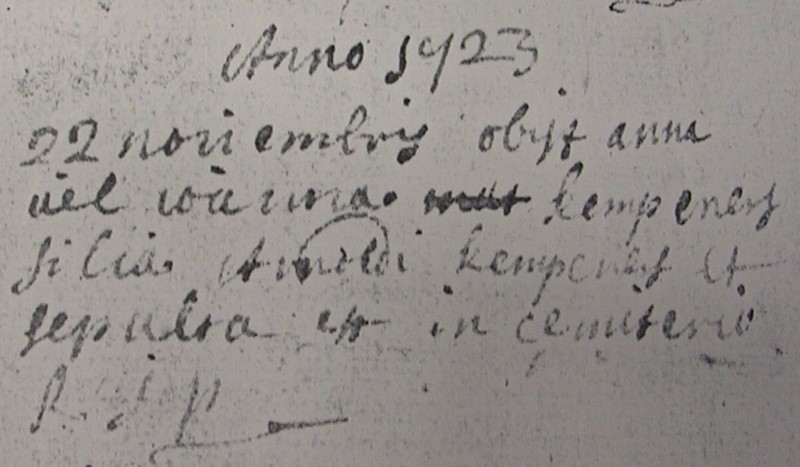 Anno 1723
22 noviembris obijt anna
vel ioanna kempeners
filia Arnoldi kempeners et
sepulta est in cemiterio
R. i. p